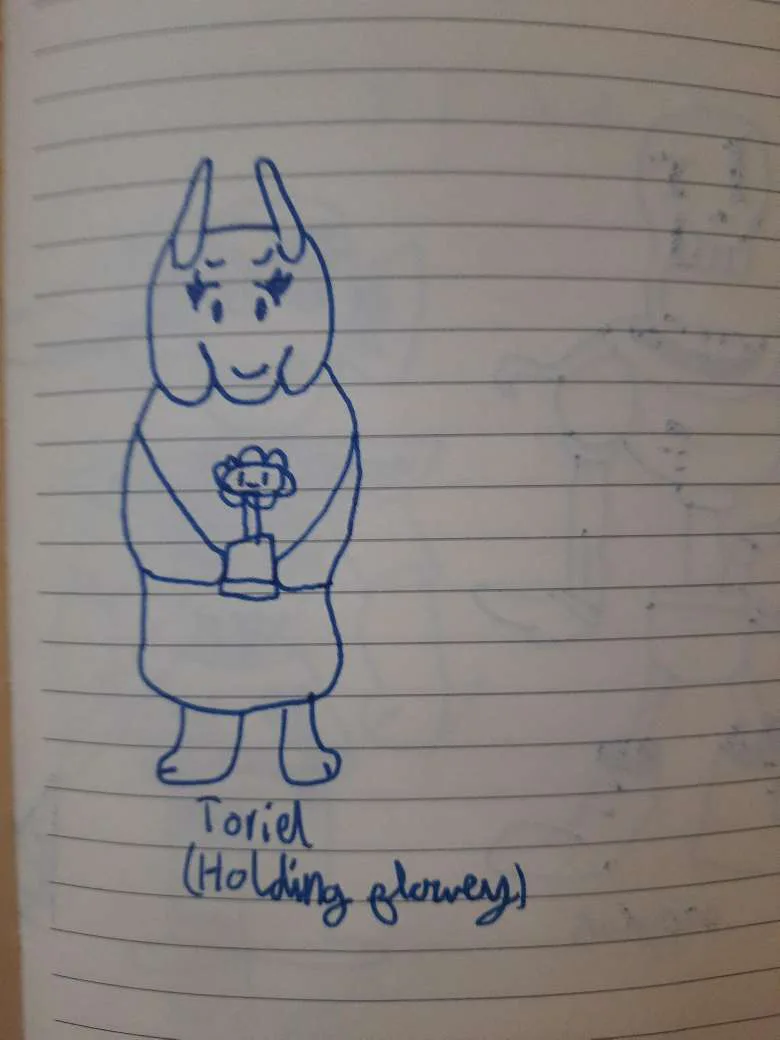 Toriel
(Holding flowey)